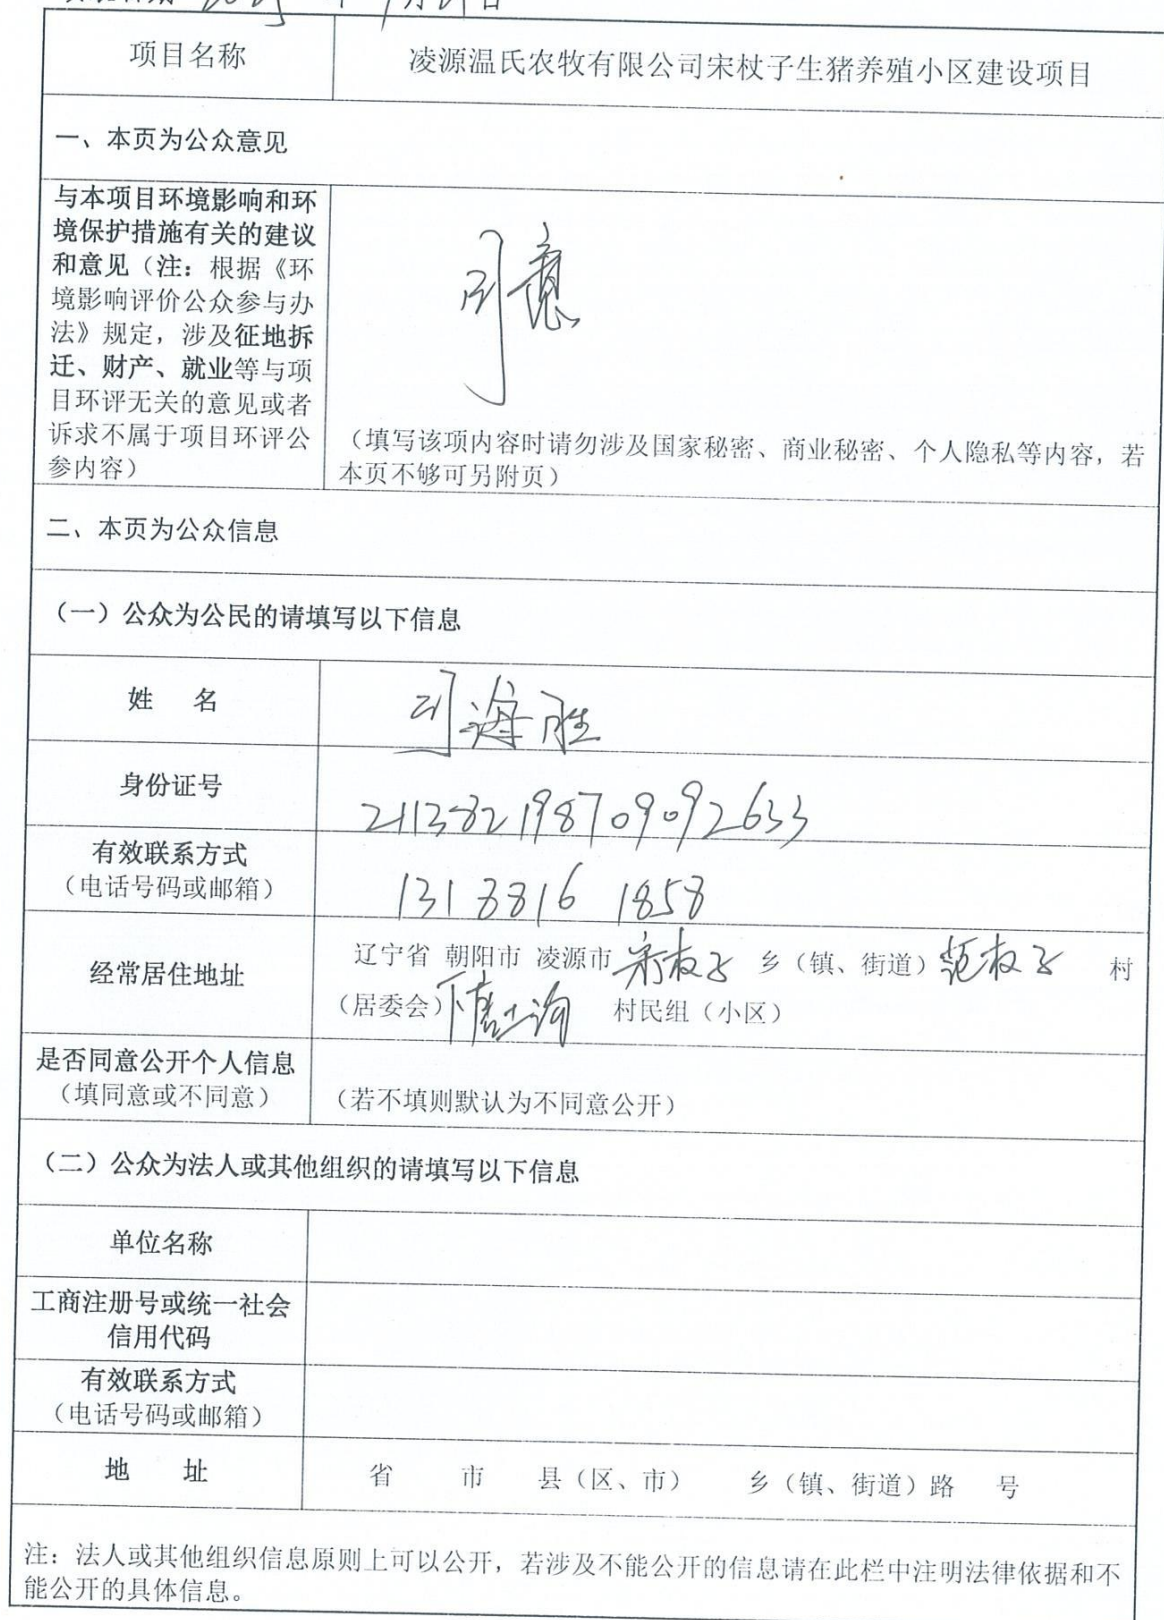 项目名称
凌源温氏农牧有限公司宋杖子生猪养殖小区建设项目
一、本页为公众意见
与本项目环境影响和环
境保护措施有关的建议
和意见（注：根据《环
境影响评价公众参与办
法》规定，涉及征地拆
迁、财产、就业等与项
目环评无关的意见或者
诉求不属于项目环评公
参内容）
同意
（填写该项内容时请勿涉及国家秘密、商业秘密、个人隐私等内容，若
本页不够可另附页）
二、本页为公众信息
（一）公众为公民的请填写以下信息
姓 名
司海胜
身份证号
211382198709092633
有效联系方式
（电话号码或邮箱）
131 8816 1858
经常居住地址
辽宁省 朝阳市 凌源市 宋杖子 乡（镇、街道）范杖子 村
（居委会） 村民组（小区）
是否同意公开个人信息
（填同意或不同意）
（若不填则默认为不同意公开）
（二）公众为法人或其他组织的请填写以下信息
单位名称
工商注册号或统一社会
信用代码
有效联系方式
（电话号码或邮箱）
地 址
省 市 县（区、市） 乡（镇、街道）路 号
注：法人或其他组织信息原则上可以公开，若涉及不能公开的信息请在此栏中注明法律依据和不
能公开的具体信息。